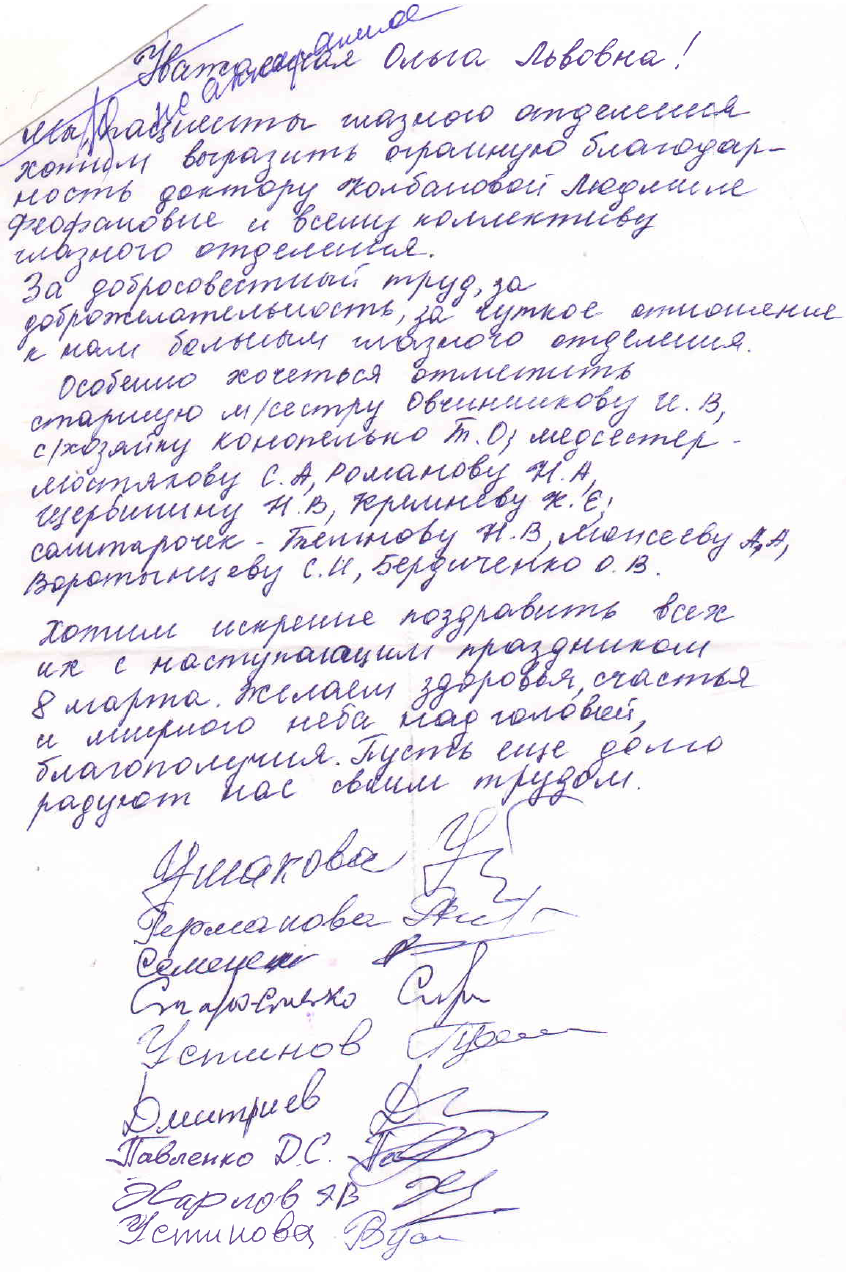 Уважаемая Ольга Львовна!
Мы, пациенты глазного отделения
хотим выразить огромную благодар-
ность доктору Колбановой Людмиле
Феофановне и всему коллективу
глазного отделения.
За добросовестный труд, за
доброжелательность, за чуткое отношение
к нам больным глазного отделения.
Особенно хочеться отметить
старшую м/сестру Овчинникову И. В,
с/хозяйку Конопелько Т. О; медсестер -
Мостякову С. А, Романову Н. А,
Щербинину Н. В, Кремневу Ж. Е;
санитарочек - Темнову Н. В, Моисееву А, А,
Воротынцеву С. И, Бердиченко О. В.
Хотим искрение поздравить всех
их с наступающим праздником
8 марта. Желаем здоровья, счастья
и мирного неба над головой,
благополучия. Пусть еще долго
радуют нас своим трудом.
Ушакова
Германова
Семенен
Устинов
Дмитриев
Павленко Д.С.
Харлов ЯВ
Устинова